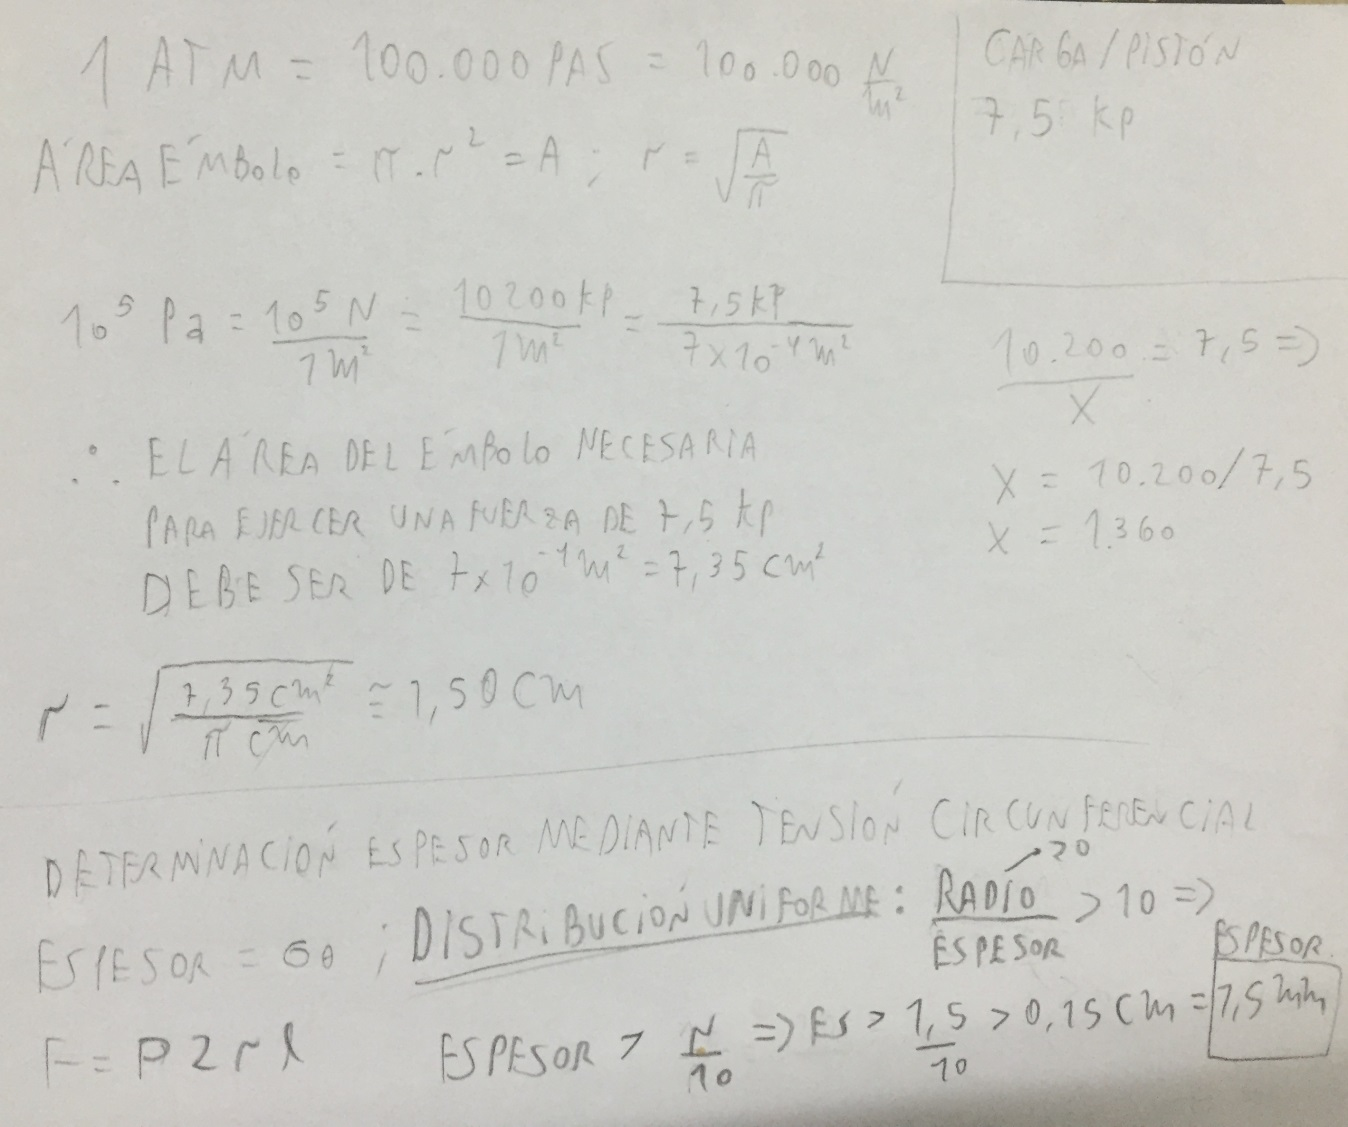 1 ATM = 100.000 PAS = 100.000 N/m²
CARGA/PISTÓN
7,5 kp
ÁREA ÉMBOLO = π.r² = A ; r = √(A/π)
10⁵ Pa = 10⁵ N/1 m² = 10200 kp/1 m² = 7,5 kP/7x10⁻⁴ m²
10.200/X = 7,5 =>
X = 10.200/7,5
X = 1.360
∴ EL ÁREA DEL ÉMBOLO NECESARIA
PARA EJERCER UNA FUERZA DE 7,5 kp
DEBE SER DE 7x10⁻⁴ m² = 7,35 cm²
r = √(7,35 cm²/π cm) ≅ 1,50 cm
DETERMINACIÓN ESPESOR MEDIANTE TENSIÓN CIRCUNFERENCIAL
ESPESOR = σθ ; DISTRIBUCIÓN UNIFORME: RADIO/ESPESOR > 10 =>
20
F = P 2 r l
ESPESOR > r/10 => ES > 1,5/10 > 0,15 cm =
ESPESOR
1,5 mm